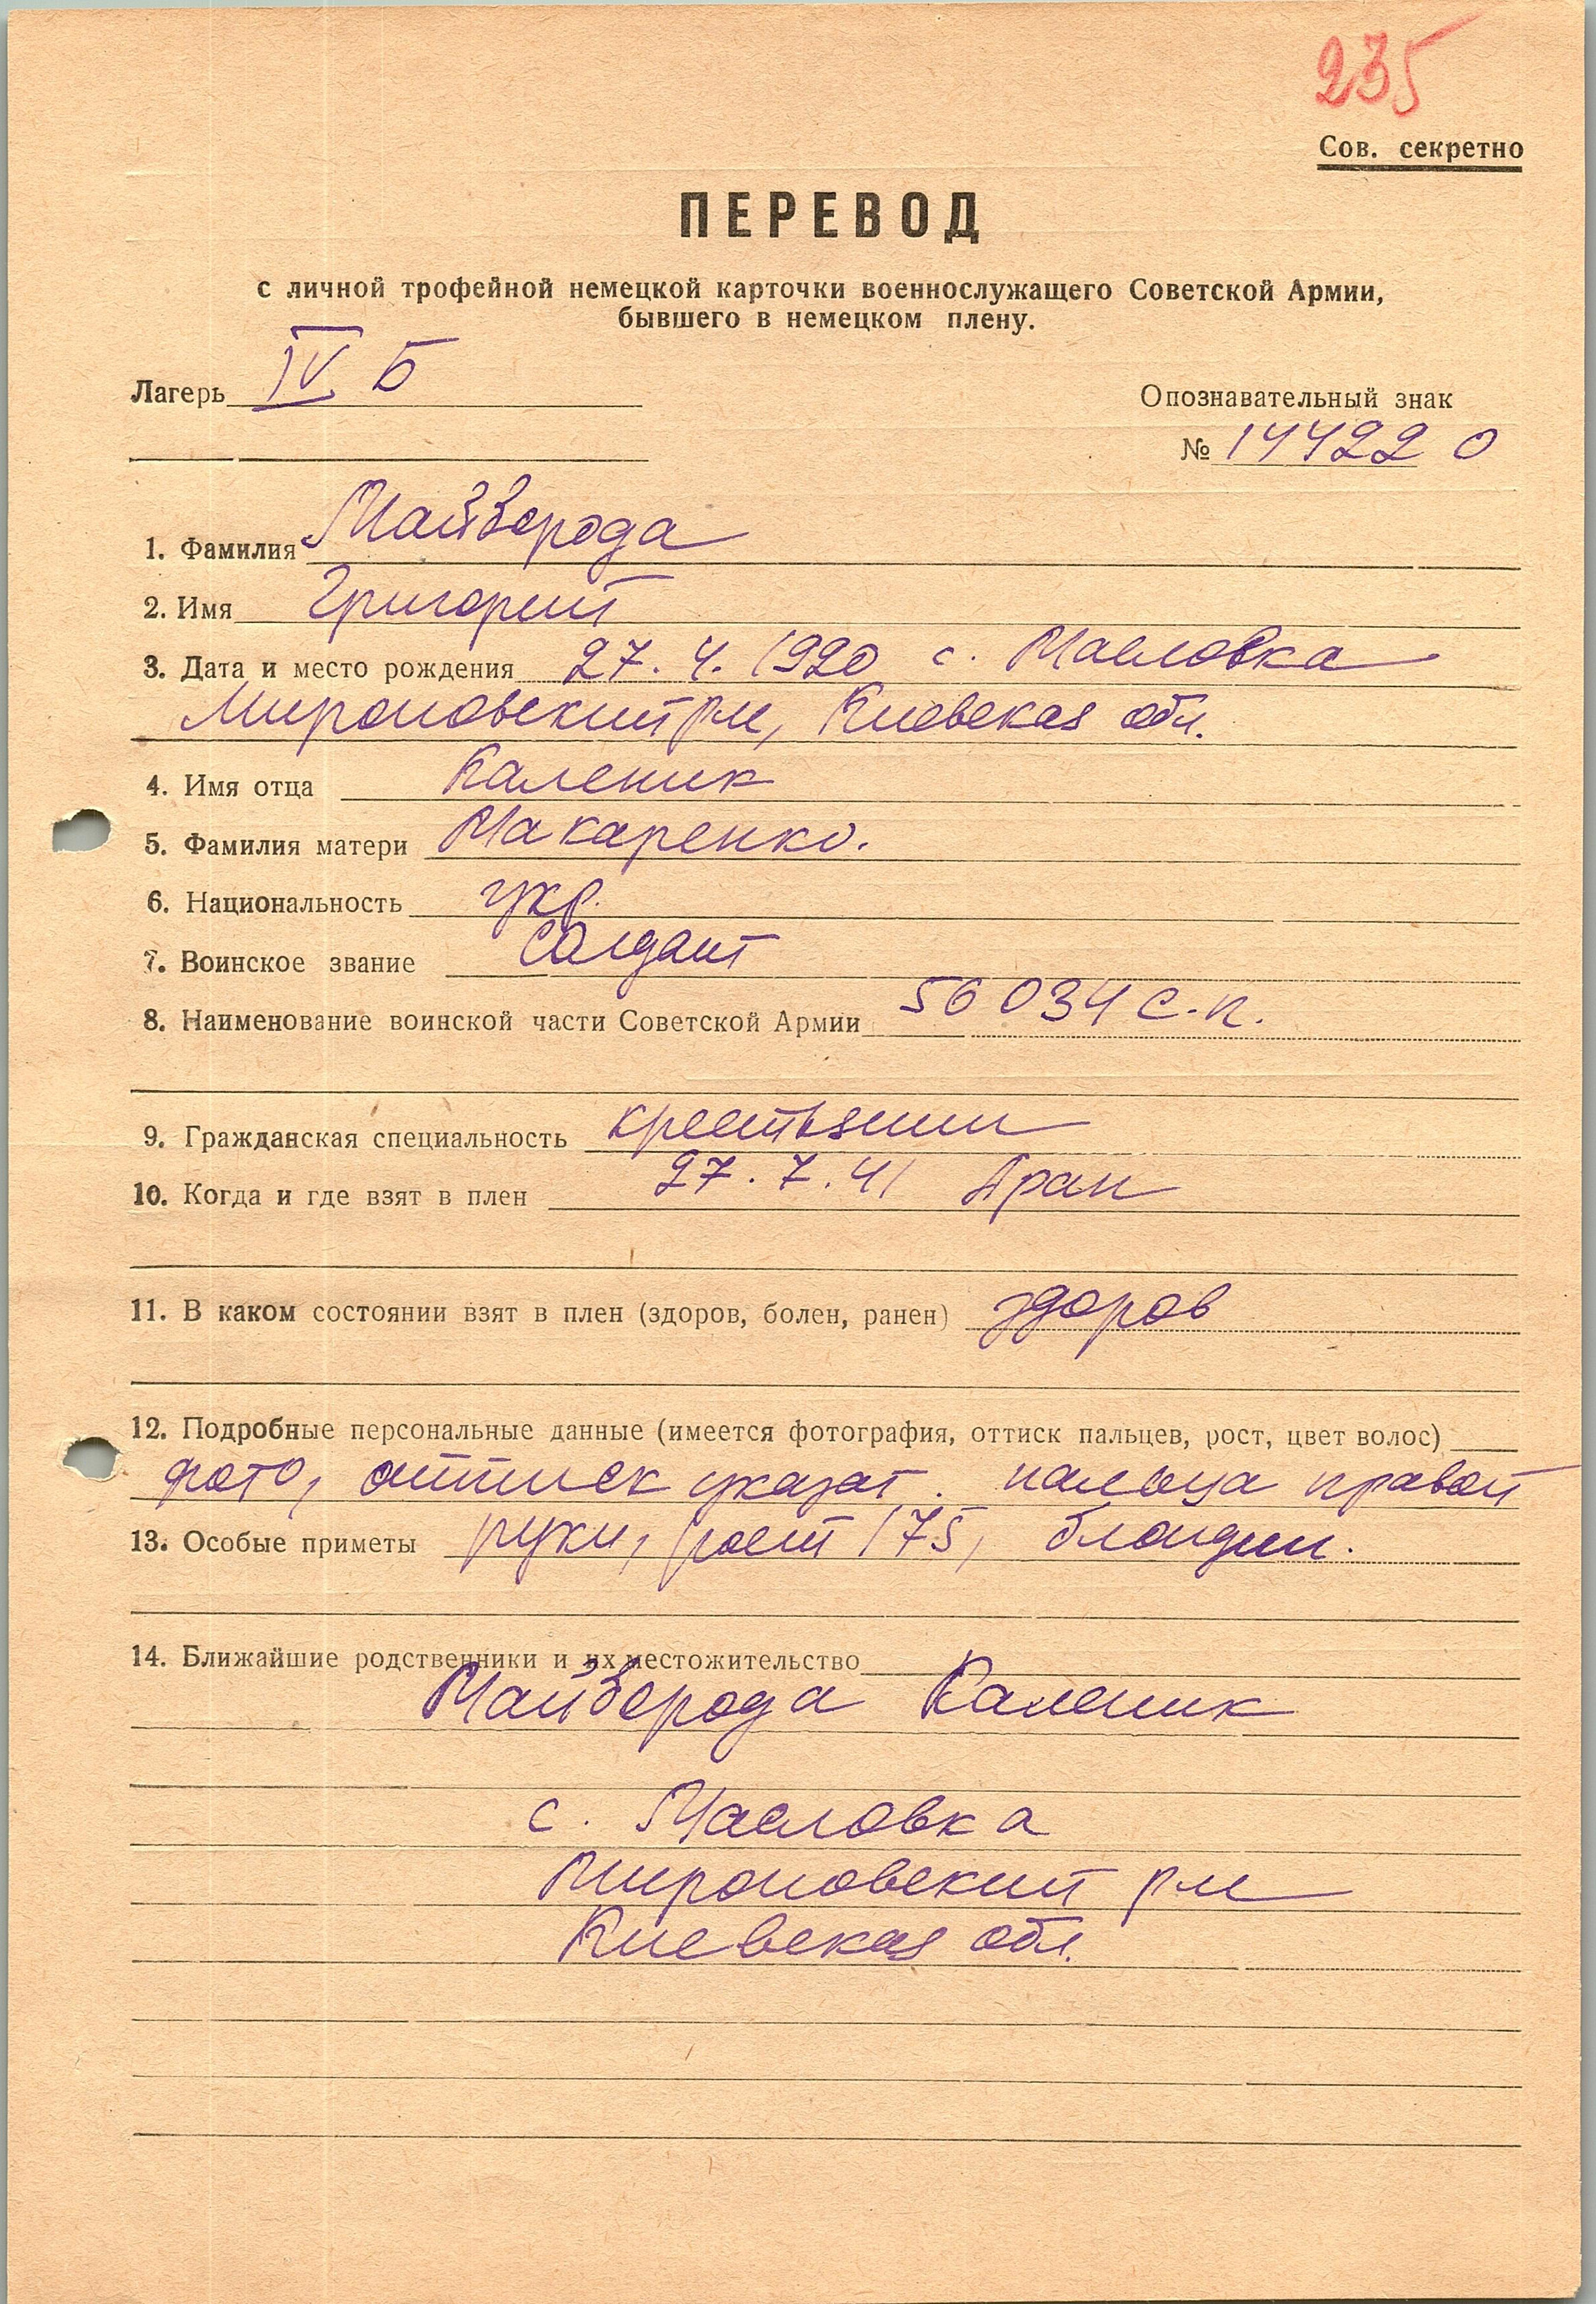 235
Сов. секретно
ПЕРЕВОД
с личной трофейной немецкой карточки военнослужащего Советской Армии,
бывшего в немецком плену.
Лагерь IV Б
Опознавательный знак
№ 144220
1. Фамилия Майборода
2. Имя Григорий
3. Дата и место рождения 27.4.1920 с. Масловка
Мироновский р-н, Киевская обл.
4. Имя отца Каленик
5. Фамилия матери Макаренко.
6. Национальность укр.
7. Воинское звание солдат
8. Наименование воинской части Советской Армии 56034 с.п.
9. Гражданская специальность крестьянин
10. Когда и где взят в плен 27.7.41
11. В каком состоянии взят в плен (здоров, болен, ранен) здоров
12. Подробные персональные данные (имеется фотография, оттиск пальцев, рост, цвет волос)
фото, оттиск указат. пальца правой
13. Особые приметы руки, рост 175, блондин.
14. Ближайшие родственники и их местожительство
Майборода Каленик
с. Масловка
Мироновский р-н
Киевская обл.